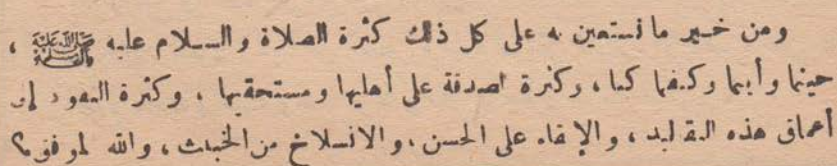 ومن خير ما نستعين به على كل ذلك كثرة الصلاة والسلام عليه ﷺ ،
حينما وأينما وكيفما كنا ، وكثرة الصدقة على أهليها ومستحقيها ، وكثرة
أعماق هذه التقاليد ، والإبقاء على الحسن ، والانسلاخ من الخبيث ، والله الموفق ؟